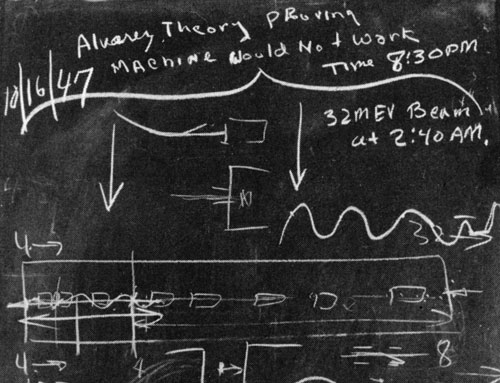 Alvarez Theory PRoving
MACHINE Would Not Work
Time 8:30PM
10/16/47
32MEV Beam
at 2:40 AM.
4
4
4
8